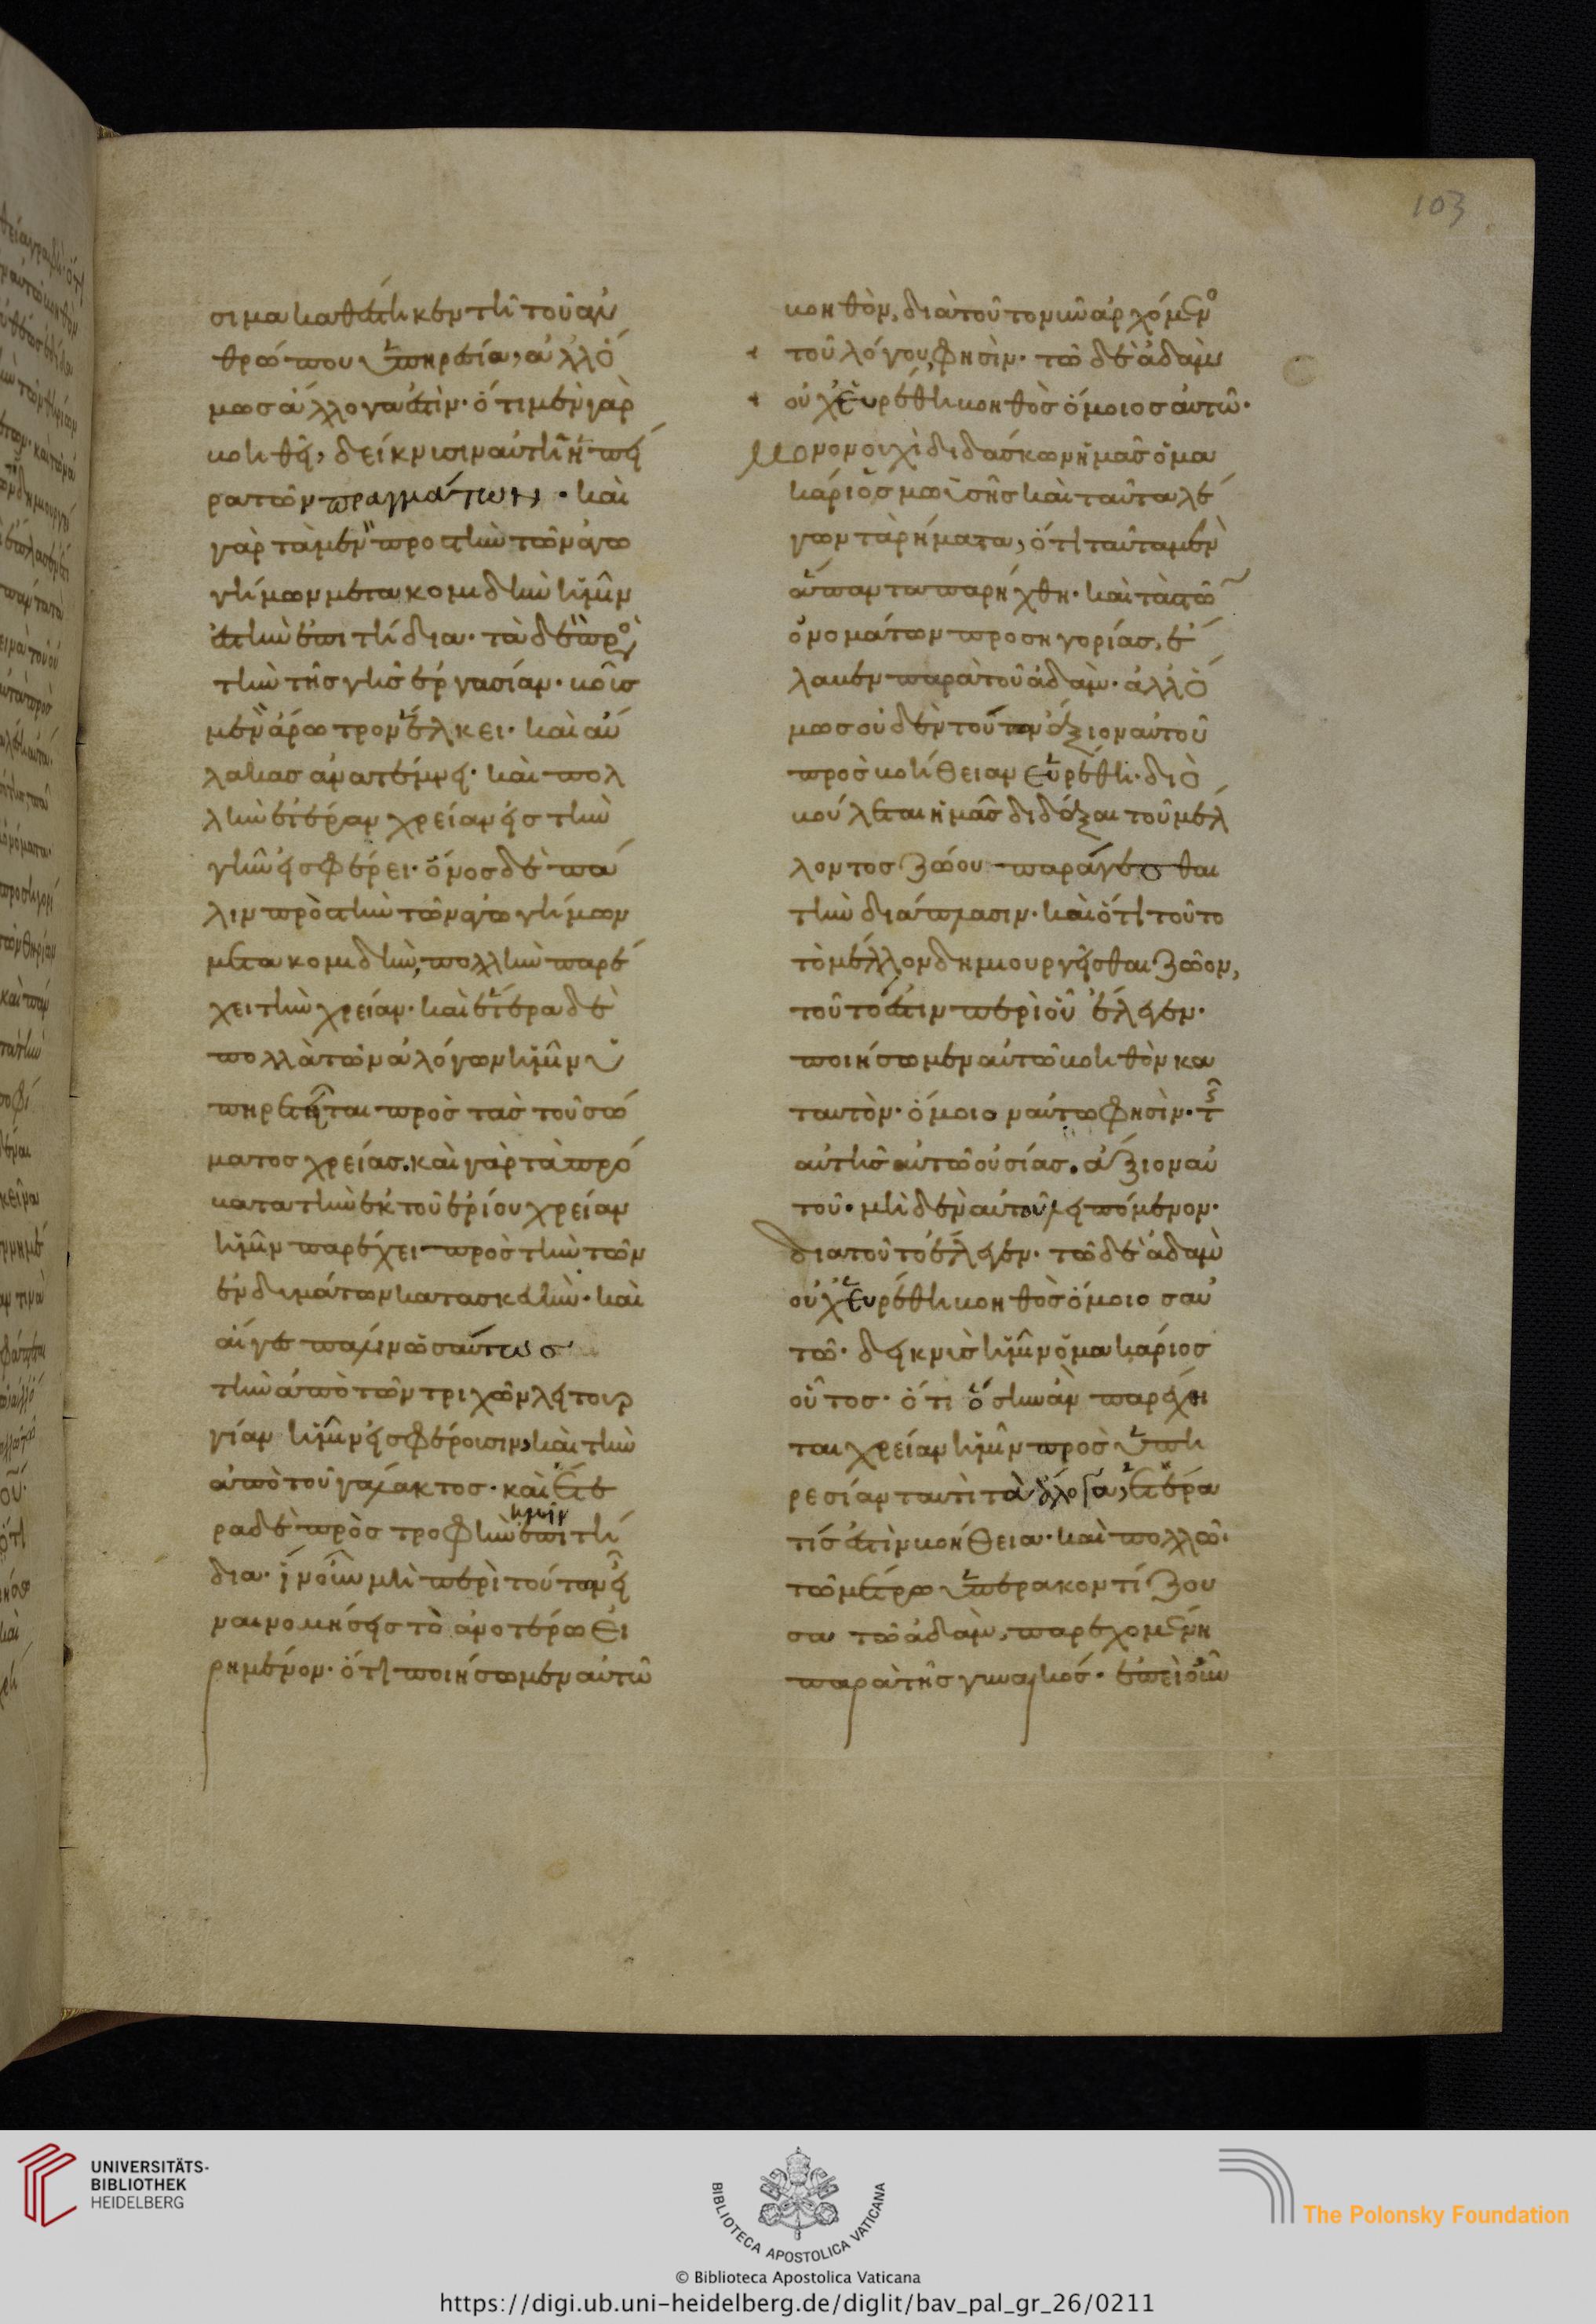 103
σιμα καθέστηκεν τῆ τοῦ ἀν
θρώπου ὑπηρεσία, ἀλλ' ὅ
μως ἄλλο γέ ἐστιν· ὅτι μὲν γὰρ
βοηθεῖ, δείκνυσιν αὐτὴ ἡ πεῖ
ρα τῶν πραγμάτων · καὶ
γὰρ τὰ μὲν πρὸς τὴν τῶν ἀγω
γίμων μετακομιδὴν ἡμῖν
ἐστὶν ἐπιτήδια· τὰ δὲ πρὸς
τὴν τῆς γῆς ἐργασίαν· βοῦς
μὲν ἄροτρον ἕλκει· καὶ αὔ
λακας ἀνατέμνει· καὶ πολ
λὴν ἑτέραν χρείαν εἰς τὴν
γῆν εἰσφέρει· ὄνος δὲ πά
λιν πρὸς τὴν τῶν ἀγωγίμων
μετακομιδὴν, πολλὴν παρέ
χει τὴν χρείαν· καὶ ἕτερα δὲ
πολλὰ τῶν ἀλόγων ἡμῖν ὑ
πηρετεῖται πρὸς τὰς τοῦ σώ
ματος χρείας. καὶ γὰρ τὰ πρό
βατα τὴν ἐκ τοῦ ἐρίου χρείαν
ἡμῖν παρέχει πρὸς τὴν τῶν
ἐνδυμάτων κατασκευήν· καὶ
αἶγες πάλιν ὡσαύτως
τὴν ἀπὸ τῶν τριχῶν λειτουρ
γίαν ἡμῖν εἰσφέρουσιν, καὶ τὴν
ἀπὸ τοῦ γάλακτος· καὶ ἕτε
ρα δὲ πρὸς τροφὴν ἡμῖν ἐπιτή
δια· ἵν' οὖν μὴ περὶ τούτων εἶ
ναι νομίσεις τὸ ἀνοτέρω εἰ
ρημένον· ὅτι ποιήσωμεν αὐτῶ
βοηθὸν, διὰ τοῦτο νῦν ἀρχόμενος
τοῦ λόγου φησίν· τῶ δὲ ἀδὰμ
οὐχ εὑρέθη βοηθὸς ὅμοιος αὐτῶ·
Μονονουχὶ διδάσκων ἡμᾶς ὁ μα
κάριος μωϋσῆς καὶ ταῦτα λέ
γων τὰ ρήματα, ὅτι ταῦτα μὲν
ἅπαντα παρήχθη· καὶ τὰς τῶν
ὀνομάτων προσηγορίας, ἔ
λαβεν παρὰ τοῦ ἀδάμ· ἀλλ' ὅ
μως οὐδὲν τούτων ἄξιον αὐτοῦ
πρὸς βοήθειαν εὑρέθη· διὸ
βούλεται ἡμᾶς διδάξαι τοῦ μέλ
λοντος ζώου παράγεσθαι
τὴν διάπλασιν· καὶ ὅτι τοῦτο
τὸ μέλλον δημιουργεῖσθαι ζῶον,
τοῦτό ἐστιν περὶ οὗ ἔλεγεν·
ποιήσωμεν αὐτῶ βοηθὸν κα
τ' αὐτόν· ὅμοιον αὐτῶ φησίν· τῆς
αὐτῆς αὐτῶ οὐσίας. ἄξιον αὐ
τοῦ. μηδὲν αὐτοῦ λειπόμενον·
διὰ τοῦτο ἔλεγεν· τῶ δὲ ἀδὰμ
οὐχ εὑρέθη βοηθὸς ὅμοιος αὐ
τῶ· δείκνυσι ἡμῖν ὁ μακάριος
οὗτος· ὅτι ὅσην ἂν παρέχη
ται χρείαν ἡμῖν πρὸς ὑπη
ρεσίαν ταυτὶ τὰ ἄλογα, ἑτέρα
τίς ἐστὶν βοήθεια· καὶ πολλῶ
τῶ μέτρω ὑπερακοντίζου
σα τῶ ἀδάμ, παρεχομένη
παρὰ τῆς γυναικός· ἐπεὶ οὖν
UNIVERSITÄTS-
BIBLIOTHEK
HEIDELBERG
BIBLIOTECA APOSTOLICA VATICANA
The Polonsky Foundation
© Biblioteca Apostolica Vaticana
https://digi.ub.uni-heidelberg.de/diglit/bav_pal_gr_26/0211